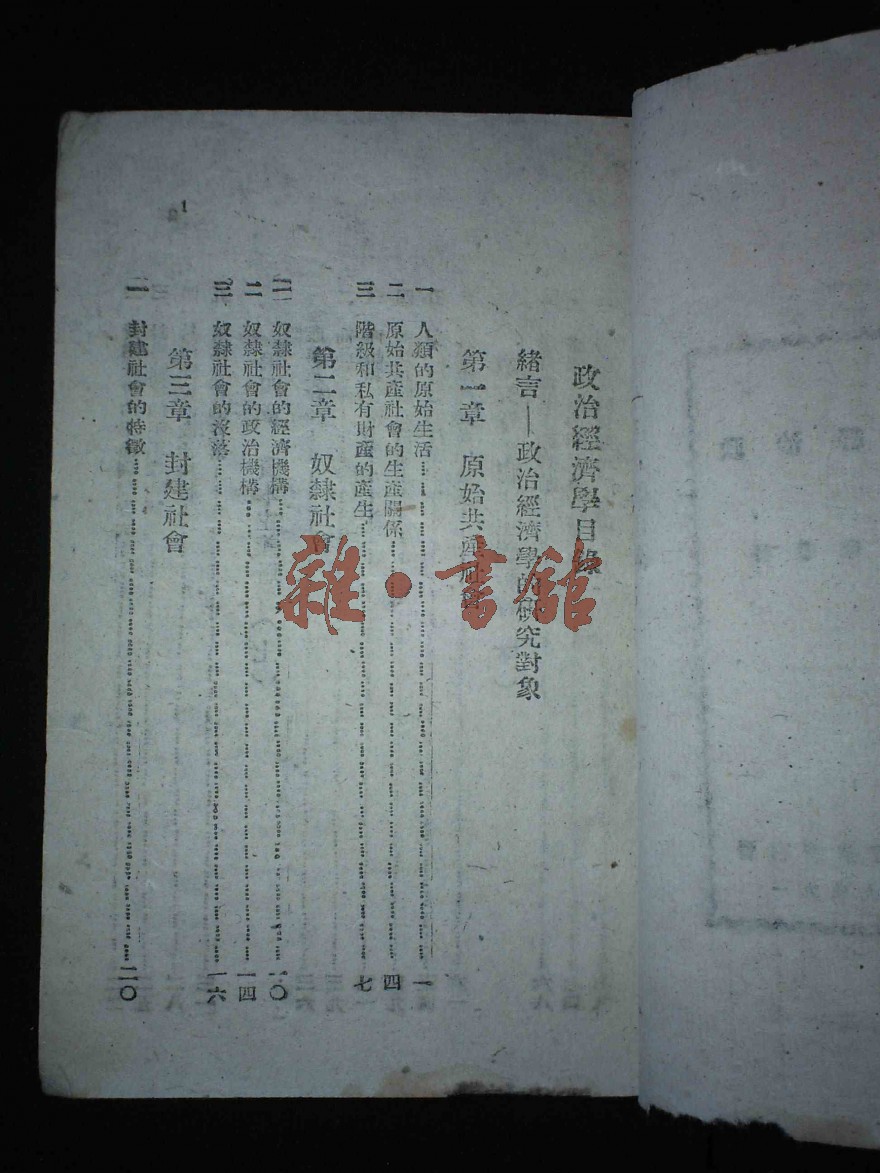 政治經濟學目錄
緒言——政治經濟學的研究對象
第一章 原始共產社會
一 人類的原始生活…………一
二 原始共產社會的生產關係…………四
三 階級和私有財產的產生…………七
第二章 奴隸社會
一 奴隸社會的經濟機構…………一〇
二 奴隸社會的政治機構…………一四
三 奴隸社會的沒落…………一六
第三章 封建社會
一 封建社會的特徵…………二〇
1
雜·書館